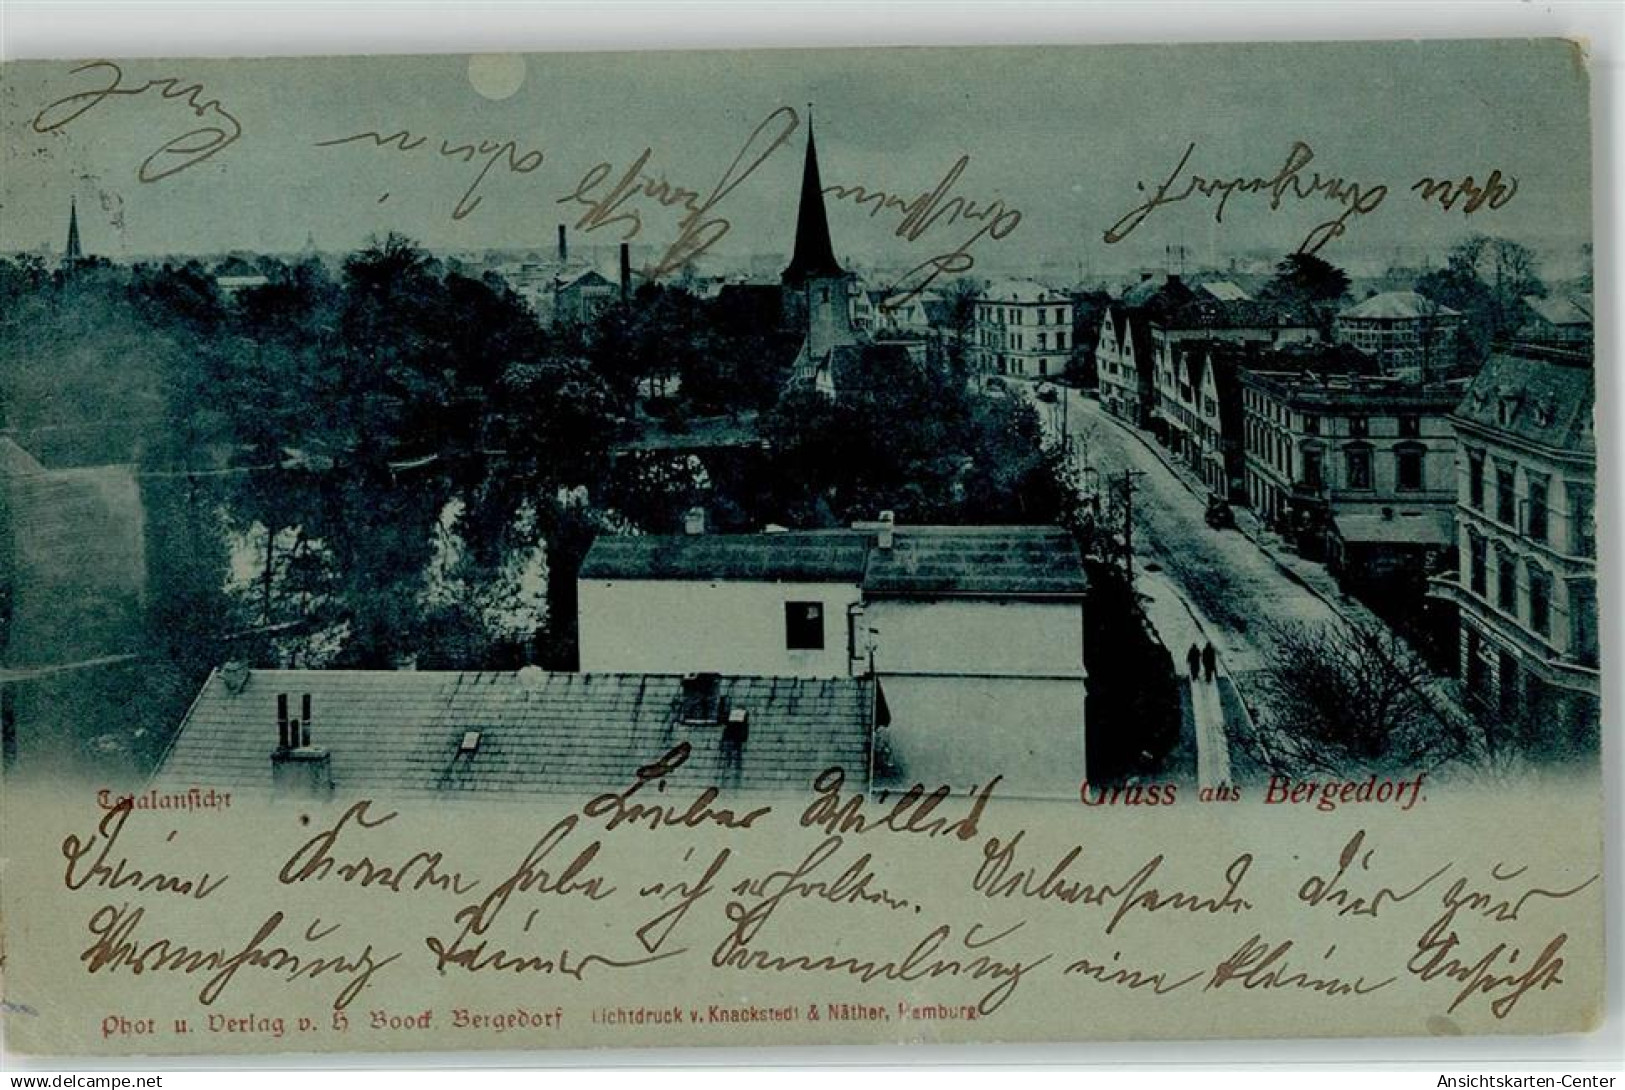 Totalansicht
Gruss aus Bergedorf.
Lieber Willi!
Deine Karte habe ich erhalten. Uebersende Dir zur
Vermehrung Deiner Sammlung eine kleine Ansicht
von Bergedorf.
Phot u. Verlag v. H Boock, Bergedorf
Lichtdruck v. Knackstedt & Näther, Hamburg.
delcampe.net
Ansichtskarten-Center